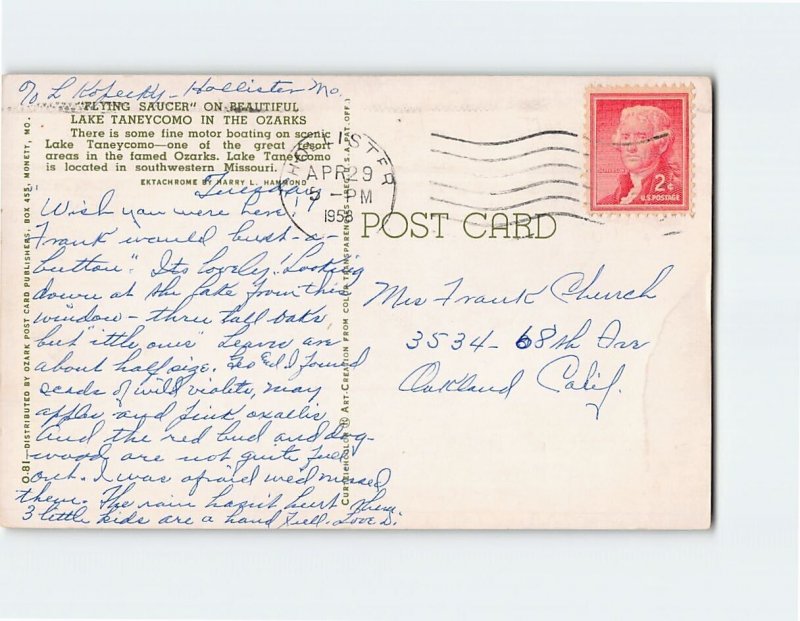 % L Kopecky - Hollister Mo.
"FLYING SAUCER" ON BEAUTIFUL
LAKE TANEYCOMO IN THE OZARKS
There is some fine motor boating on scenic
Lake Taneycomo—one of the great resort
areas in the famed Ozarks. Lake Taneycomo
is located in southwestern Missouri.
EKTACHROME BY HARRY L. HAMMOND
Tuesday
"Wish you were here!"
Frank would bust-a-
button". Its lovely! Looking
down at the lake from this
window - thru tall oaks
but "ittle ones" Leaves are
about half size. Geo Ed. I found
scads of wild violets, may
apples and pink oxalis
And the red bud and dog-
wood are not quite full
out. I was afraid we'd missed
them. The rain hasn't hurt them.
3 little kids are a hand full. Love D.
O-81—DISTRIBUTED BY OZARK POST CARD PUBLISHERS, BOX 455, MONETT, MO.
CURTEICHCOLOR ® ART-CREATION FROM COLOR TRANSPARENCIES (REG. U.S.A. PAT. OFF.)
HOLLISTER
APR 29
9 - PM
1958
2¢
U.S. POSTAGE
POST CARD
Mrs Frank Church
3534 - 68th Ave
Oakland Calif.